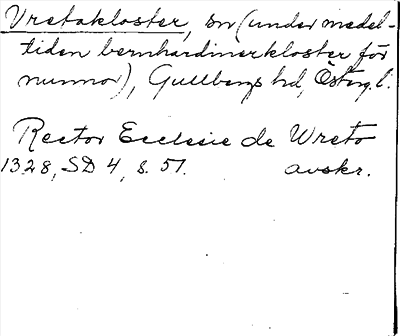 Vretakloster, sn (under medel-
tiden bernhardinerkloster för
nunnor), Gullbergs hd, Östergl.
Rector Ecclesie de Wreto
1328, SD 4, s. 51. avskr.